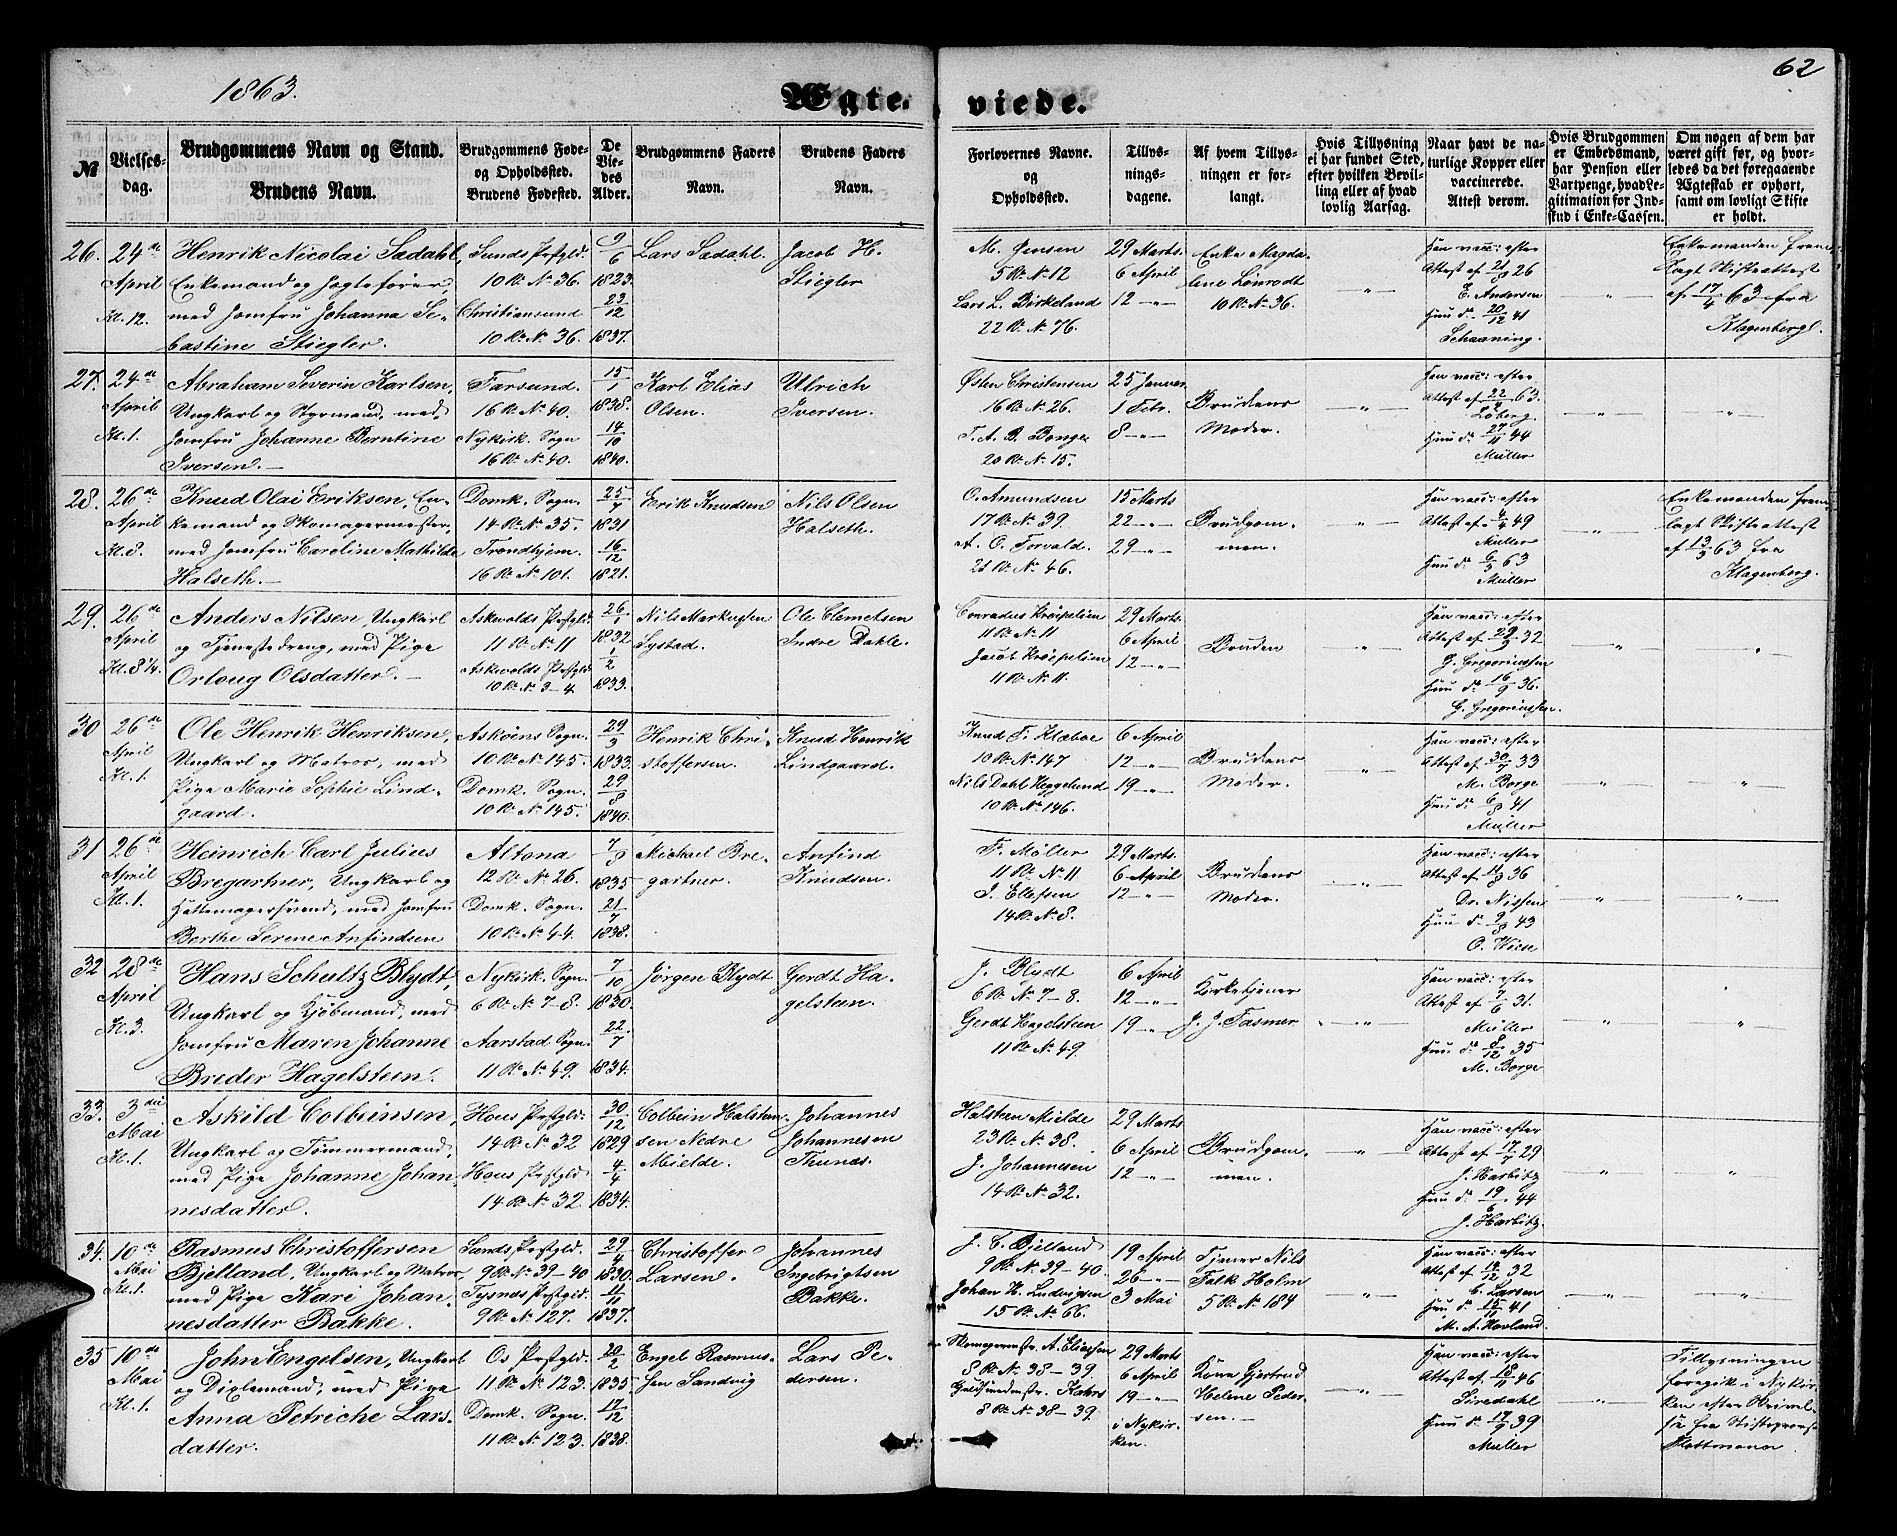 1863.
62
Ægte-
viede.
№
Vielses-
dag.
Brudgommens Navn og Stand.
Brudens Navn.
Brudgommens Føde-
og Opholdssted.
Brudens Fødested.
De
Vie-
des
Alder.
Brudgommens Faders
Navn.
Brudens Faders
Navn.
Forlovernes Navne.
og
Opholdssted.
Tillys-
nings-
dagene.
Af hvem Tillys-
ningen er for-
langt.
Hvis Tillysning
ei har fundet Sted,
efter hvilken Bevil-
ling eller af hvad
lovlig Aarsag.
Naar havt de na-
turlige Kopper eller
vaccinerede.
Attest derom.
Hvis Brudgommen
er Embedsmand,
har Pension eller
Vartpenge, hvad Le-
gitimation for Ind-
skud i Enke-Cassen.
Om nogen af dem har
været gift før, og hvor-
ledes da det foregaaende
Ægteskab er ophørt,
samt om lovligt Skifte
er holdt.
26.
24de
April
Kl. 12.
Henrik Nicolai Sædahl,
Enkemand og Jagtefører,
med Jomfru Johanna Se-
bastine Stiegler.
Sunds Prstgld.
10 R. N. 36.
Christiansund
10 R. N. 36.
9/6
1823.
23/12
1837.
Lars Sædahl.
Jacob H.
Stiegler
M. Jensen
5 R. N. 12
Lars L. Birkeland
22 R. N. 76.
29 Marts.
6 April
12 — „ —
Enke Magda-
lene Lønrodt
10 R. N. 36.
— „ —
Han vacc: efter
Attest af 21/9 26
E. Andersen
Hun do 20/12 41
Schaaning.
— „ —
Enkemanden frem-
lagt Skifteattest
af 17/4 63 fra
Klagenberg.
27.
24de
April
Kl. 1.
Abraham Severin Karlsen,
Ungkarl og Styrmand, med
Jomfru Johanne Berntine
Iversen. —
Farsund.
16 R. N. 40.
Nykirk. Sogn
16 R. N. 40.
15/1
1838.
14/10
1840.
Karl Elias
Olsen.
Ulrich
Iversen.
Østen Christensen
16 R. N. 26.
T. A. B. Bonge
20 R. N. 15.
25 Januar.
1 Febr.
8 — „ —
Brudens
Moder.
— „ —
Han vacc: efter
Attest af 22/4 63.
Løberg.
Hun do 27/11 44
Müller
— „ —
„
28.
26de
April
Kl. 8.
Knud Olai Eriksen, En-
kemand og Skomagermester,
med Jomfru Caroline Mathilde
Halseth. —
Domk. Sogn.
14 R. N. 35.
Trondhjem.
16 R. N. 101.
25/7
1831
16/12
1821.
Erik Knudsen
Nils Olsen
Halseth.
O. Amundsen
17 R. N. 39.
A. O. Torvald.
21 R. N. 46.
15 Marts
22 — „ —
29 — „ —
Brudgom-
men.
— „ —
Han vacc: efter
Attest af 4/4 49
Müller
Hun do 6/3 63
Müller
— „ —
Enkemanden frem-
lagt Skifteattest
af 13/3 63 fra
Klagenberg.
29.
26de
April
Kl. 8¼.
Anders Nilsen, Ungkarl
og Tjenestedreng, med Pige
Orloug Olsdatter. —
Askevolds Prstgld.
11 R. N. 11
Askevolds Prstgld
10 R. N. 3-4.
26/1
1832
1/2
1833.
Nils Markussen
Systad.
Ole Clemetsen
Indre Dahle.
Conradus Krøpelien
11 R. N. 11
Jacob Krøpelien
11 R. N. 11.
29 Marts.
6 April
12 — „ —
Bruden
— „ —
Han vacc: efter
Attest af 29/9 32
G. Gregoriussen
Hun do 16/9 36.
G. Gregoriussen.
— „ —
„
30
26de
April
Kl. 1.
Ole Henrik Henriksen,
Ungkarl og Matros, med
Pige Marie Sophie Lind-
gaard.
Askøens Sogn.
10 R. N. 145.
Domk. Sogn.
10 R. N. 145.
29/3
1833.
29/8
1840.
Henrik Chri-
stoffersen.
Knud Henrik
Lindgaard.
Knud T. Klæboe
10 R. N. 147
Nils Dahl Heggelund
10 R. N. 146.
6 April
12 — „ —
19 — „ —
Brudens
Moder.
— „ —
Han vacc: efter
Attest af 30/7 33
M. Borge
Hun do 6/8 41
Müller
— „ —
„
31
26de
April
Kl. 1.
Heinrich Carl Julius
Bregartner, Ungkarl og
Hattemagersvend, med Jomfru
Berthe Serene Anfindsen
Altona
12 R. N. 26.
Domk. Sogn.
10 R. N. 44.
7/9
1835
21/7
1838.
Michael Bre-
gartner.
Anfind
Knudsen.
F. Möller
11 R. N. 11
I. Ellefsen
14 R. N. 8.
29 Marts.
6 April
12 — „ —
Brudens
Moder.
— „ —
Han vacc: efter
Attest af 14/8 36
Dr. Nissen
Hun do 9/8 43
O. Wiese
— „ —
— „ —
32
28de
April
Kl. 3.
Hans Schultz Blydt,
Ungkarl og Kjøbmand, med
Jomfru Maren Johanne
Breder Hagelsteen.
Nykirk. Sogn.
6 R. N. 7-8.
Aarstad Sogn.
11 R. N. 49.
7/10
1830.
22/7
1834.
Jørgen Blydt
Gerdt Ha-
gelsteen.
J. Blydt
6 R. N. 7-8.
Gerdt Hagelsteen
11 R. N. 49.
6 April
12 — „ —
19 — „ —
Kirketjener
J. J. Fasmer
— „ —
Han vacc: efter
Attest af 7/6 31.
Müller
Hun do 8/12 35
M. Borge
— „ —
„
33.
3die
Mai
Kl. 1.
Askild Colbeinsen,
Ungkarl og Tømmermand,
med Pige Johanne Johan-
nesdatter.
Hous Prstgld.
14 R. N. 32
Hous Prstgld
14 R. N. 32.
30/12
1829
4/4
1834.
Colbein Halsten-
sen Nedre
Mielde.
Johannes
Johannesen
Thunæs.
Halsten Mielde
23 R. N. 38.
J. Johannesen
14 R. N. 32.
29 Marts
6 April
12 — „ —
Brudgom-
men.
— „ —
Han vacc: efter
Attest af 17/7 29
J. Harbitz
Hun do 19/6 44
J. Harbitz.
— „ —
„
34.
10de
Mai
Kl. 1.
Rasmus Christoffersen
Bjelland, Ungkarl og Matros,
med Pige Kari Johan-
nesdatter Bakke.
Sunds Prstgld.
9 R. N. 39-40
Tysnes Prstgld.
9 R. N. 127.
29/4
1830.
11/11
1837.
Christoffer
Larsen.
Johannes
Ingebrigtsen
Bakke.
J. C. Bjelland
9 R. N. 39-40.
Johan H. Ludvigsen
15 R. N. 66.
19 April
26 — „ —
3 Mai
Tjener Nils
Falk Holm
5 R. N. 184
— „ —
Han vacc: efter
Attest af 14/12 32
C. Larsen
Hun do 15/11 41
M. A. Hovland.
— „ —
— „ —
35
10de
Mai
Kl. 1.
John Engelsen, Ungkarl
og Dixlemand, med Pige
Anna Petriche Lars-
datter.
Os Prstgld.
11 R. N. 123.
Domk. Sogn.
11 R. N. 123.
20/2
1835
17/12
1838.
Engel Rasmus-
sen Sandvig
Lars Pe-
dersen.
Skomagermstr. A. Eliasen
8 R. N. 38-39.
Guldsmedmstr. Kahrs
8 R. N. 38-39.
29 Marts
6 April
19 — „ —
i Nykir-
ken.
Kone Gjertrud
Helene Peder-
sen. —
— „ —
Han vacc: efter
Attest af 18/11 46
Siredahl
Hun do 17/9 39
Müller
— „ —
Tillysningen
foregik i Nykir-
ken efter Bevil-
se fra Stiftsprovst
Plottmann.